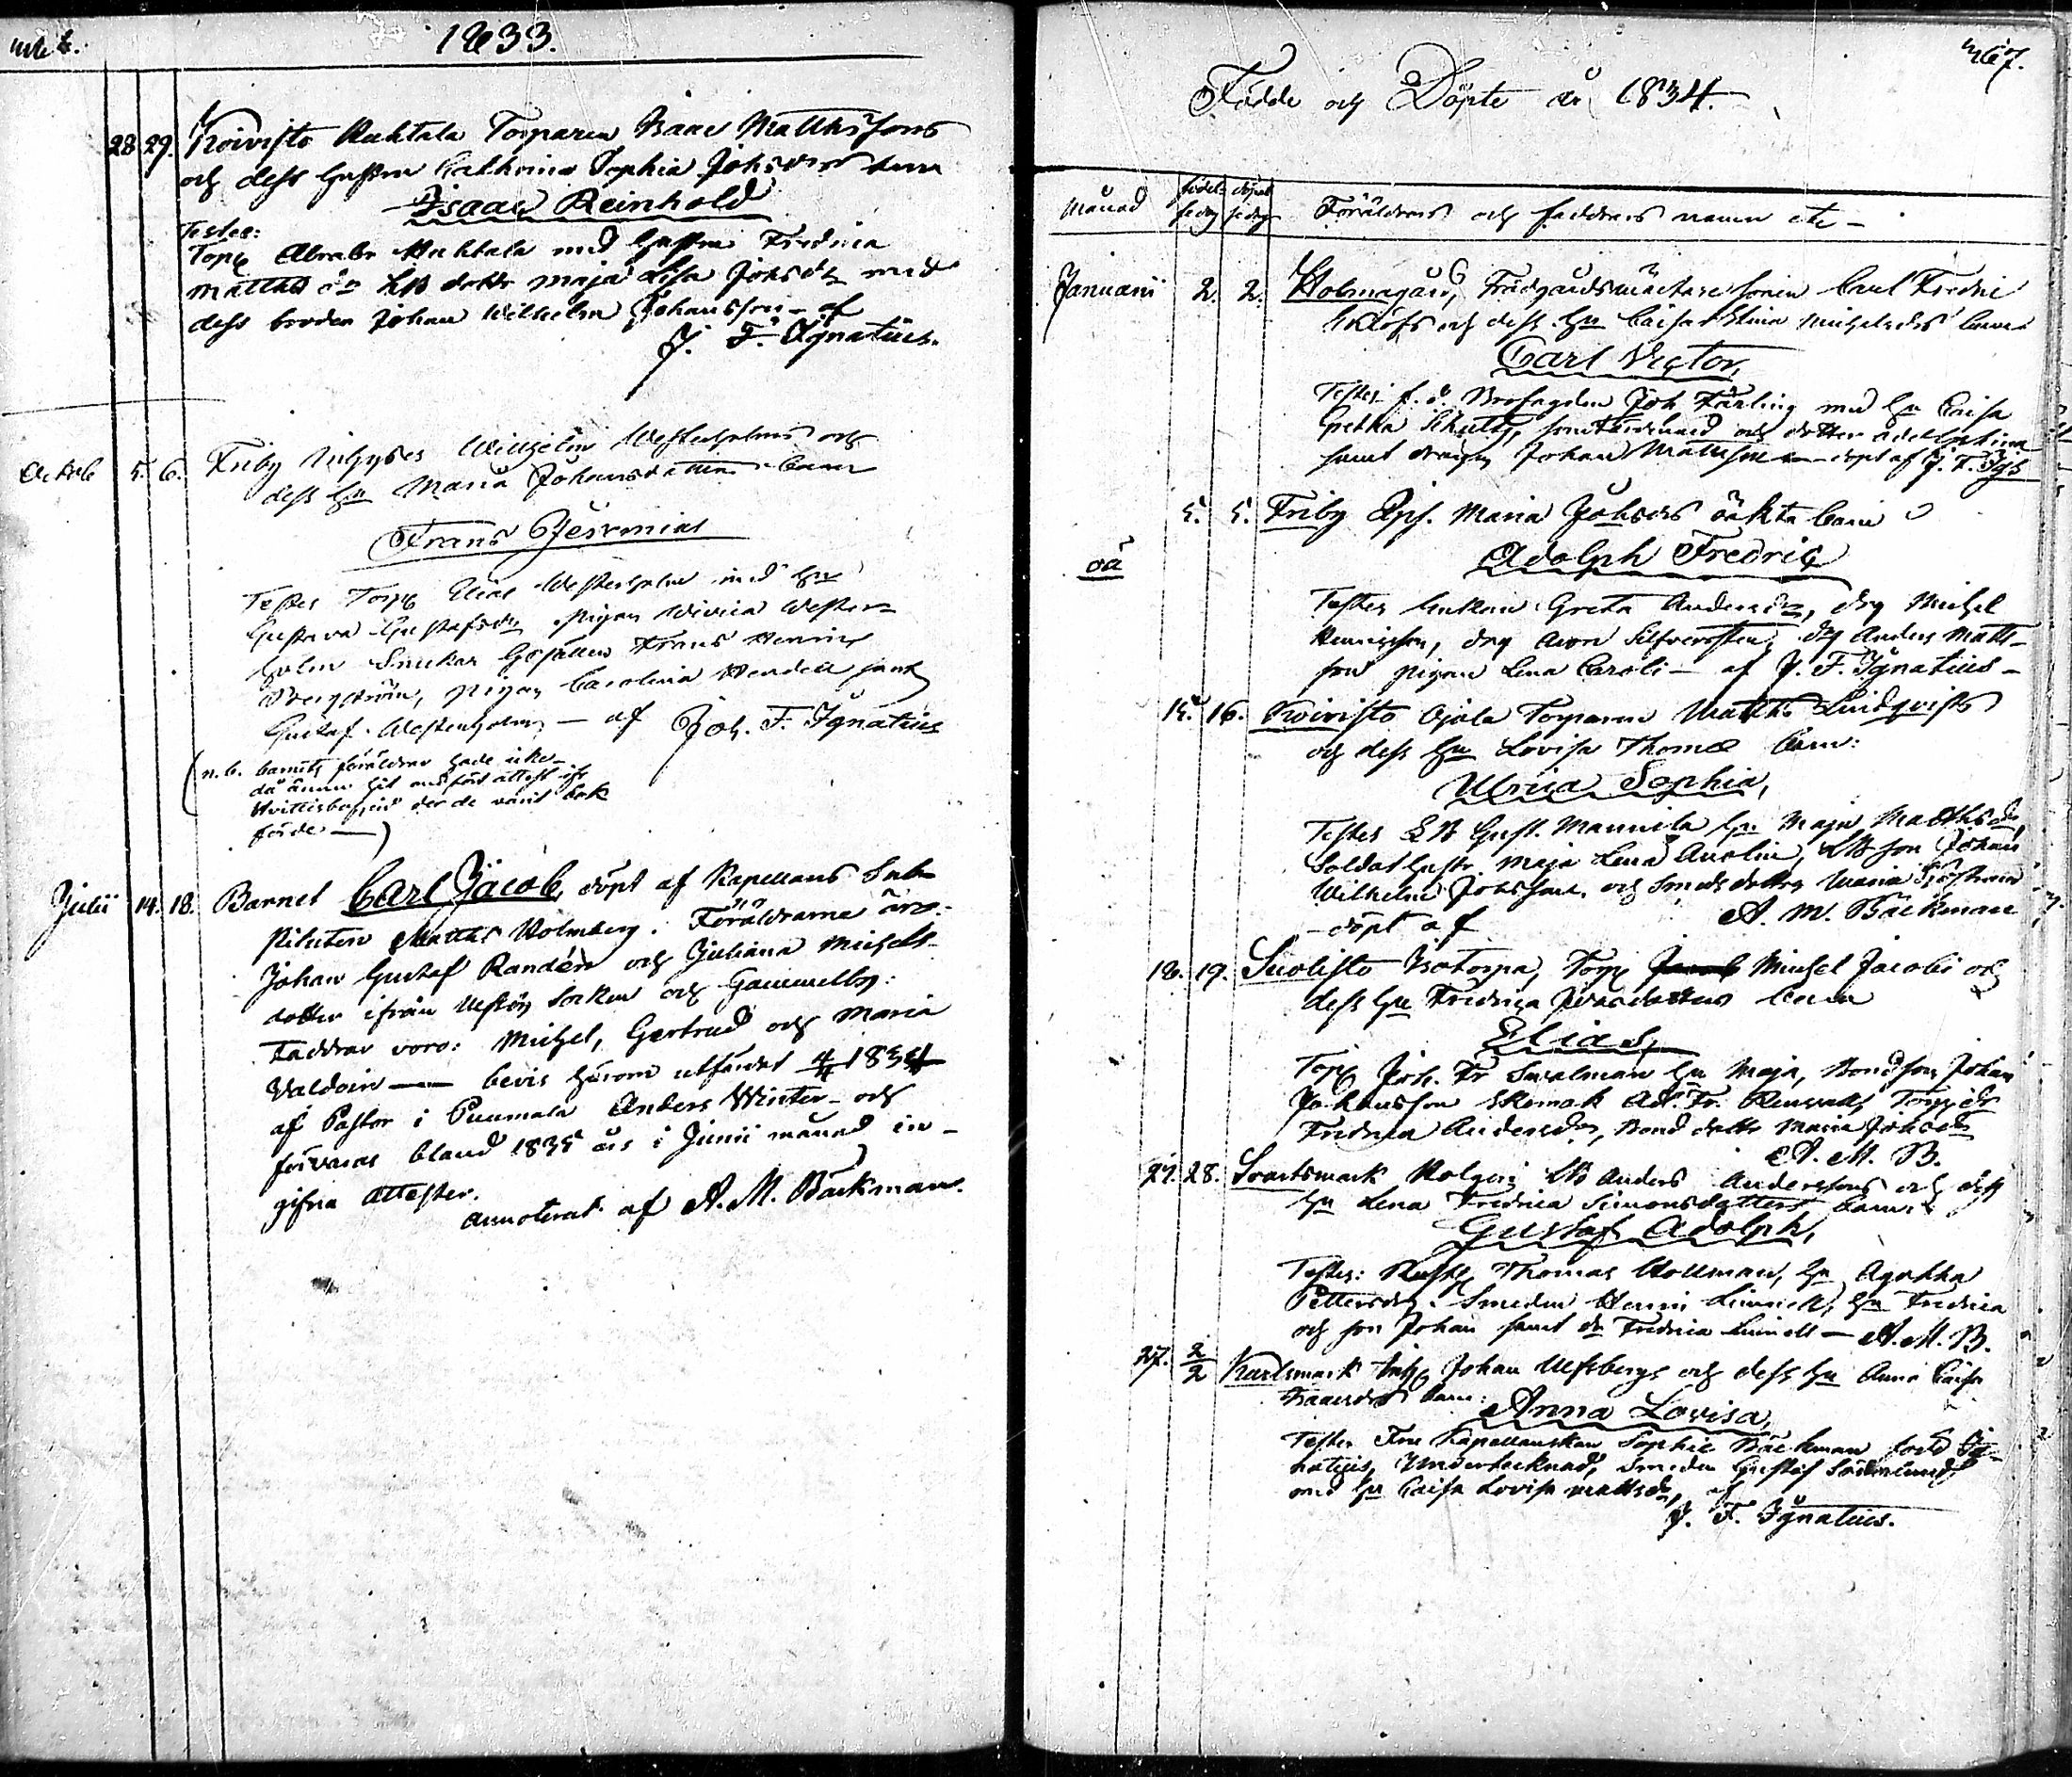 1833.
28 29. Koivisto Huhtala Torparen Isaac Matthssons
och dess hustru Cathrina Sophia Johsdrs barn
Isaac Reinhold
Testes:
Torp Abrah Huhtala med hustru Fredrica
Matthsd dotter Maja Lisa Johsdr med
dess broder Johan Wilhelm Johansson - af
J. F. Ignatius.
Octob 5. 6. Friby Inhyses Willhelm Westerholms och
dess hu Maria Johansdotters barn
Frans Jeremias
Testes Torp Elias Westerholm med hu
Gustava Gustafsdr, pigan Wivica Wester-
holm Snickar Gesällen Frans Henric
Bergström, pigan Carolina Wendell samt
Gustaf Westerholm - af Joh. F. Ignatius
(n.b. barnets föräldrar hade icke
då ännu hit medfört attest ifr
Hvittisbofjerd der de varit bok
förde —)
Julii 14. 18. Barnet Carl Jacob, döpt af Kapellans Sub-
stituten Matths Holmberg. Föräldrarne äro:
Johan Gustaf Randén och Juliana Michels-
dotter ifrån socken och Gammelby:
Faddrar voro: Michel, Gertrud och Maria
Valdoin — bevis härom utfärdat 4/4 1834
af Pastor i Puumala Anders Winter - och
förvaras bland 1835 års i Junii månad in-
gifna attester.
annoterat af A. M. Backman.
367.
Födde och Döpte år 1834.
Månad födel- döpel-
sedag sedag Föräldrars och faddrars namn etc -
Januarii 2. 2. Holmagård, Trädgårdsmästare sonen Carl Fredric
och dess hu Caisa Stina Michelsdrs barn
Carl Victor,
Testes f. d. Brofogden Joh Färling med hu Caisa
Greta Schultz, och dotter Adelgthina
samt drängen Johan Mattsson — döpt af J. F. Igs
5. 5. Friby Pig. Maria Johsdrs oäkta barn
oä Adolph Fredric
Testes Enkan Greta Andersdr, drg Michel
Henricsson, drg Aron Silfversten, drg Anders Matts-
son pigan Lena Caroli - af J. F. Ignatius -
15. 16. Koivisto Ojala Torparen Matths Lindqvists
och dess hu Lovisa Thomæ barn:
Ulrica Sophia,
Testes LB Gust. Mannila hu Maja Matthsdr,
Soldat hustr Maja Lena Anolin, LB son Johan
Wilhelm Johsson och Smeds dottr Maria Sjöström
- döpt af A. M. Backman
18. 19. Suolisto Isotorpa, Torp Michel Jacobs och
dess hu Fredrica Jvarsdotters barn
Elias,
Torp Joh. Fr Swalman hu Maja, Bondson Johan
Johansson Skomak Ad. Fr. Renvall, Torp dr
Fredrica Andersdr, Bond dottr Maria Johsdr
A. M. B.
27. 28. Svartsmark Holgers LB Anders Anderssons och dess
hu Lena Fredrica Simonsdotters barn:
Gustaf Adolph,
Testes: Rusth Thomas Hollman, hu Agatha
Pettersdr. Smeden Henric Linnell, hu Fredrica
och son Johan samt dr Fredrica Linnell - A. M. B.
27. 2/2 Karlsmark Inh Johan Ulfsbergs och dess hu Anna Caisa
Isaacsdrs barn: Anna Lovisa,
Testes Fru Kapellanskan Sophie Backman född Ig-
natius, Undertecknad, Smeden Gustaf Söderlund
med hu Caisa Lovisa Mattsdr, af
J. F. Ignatius.